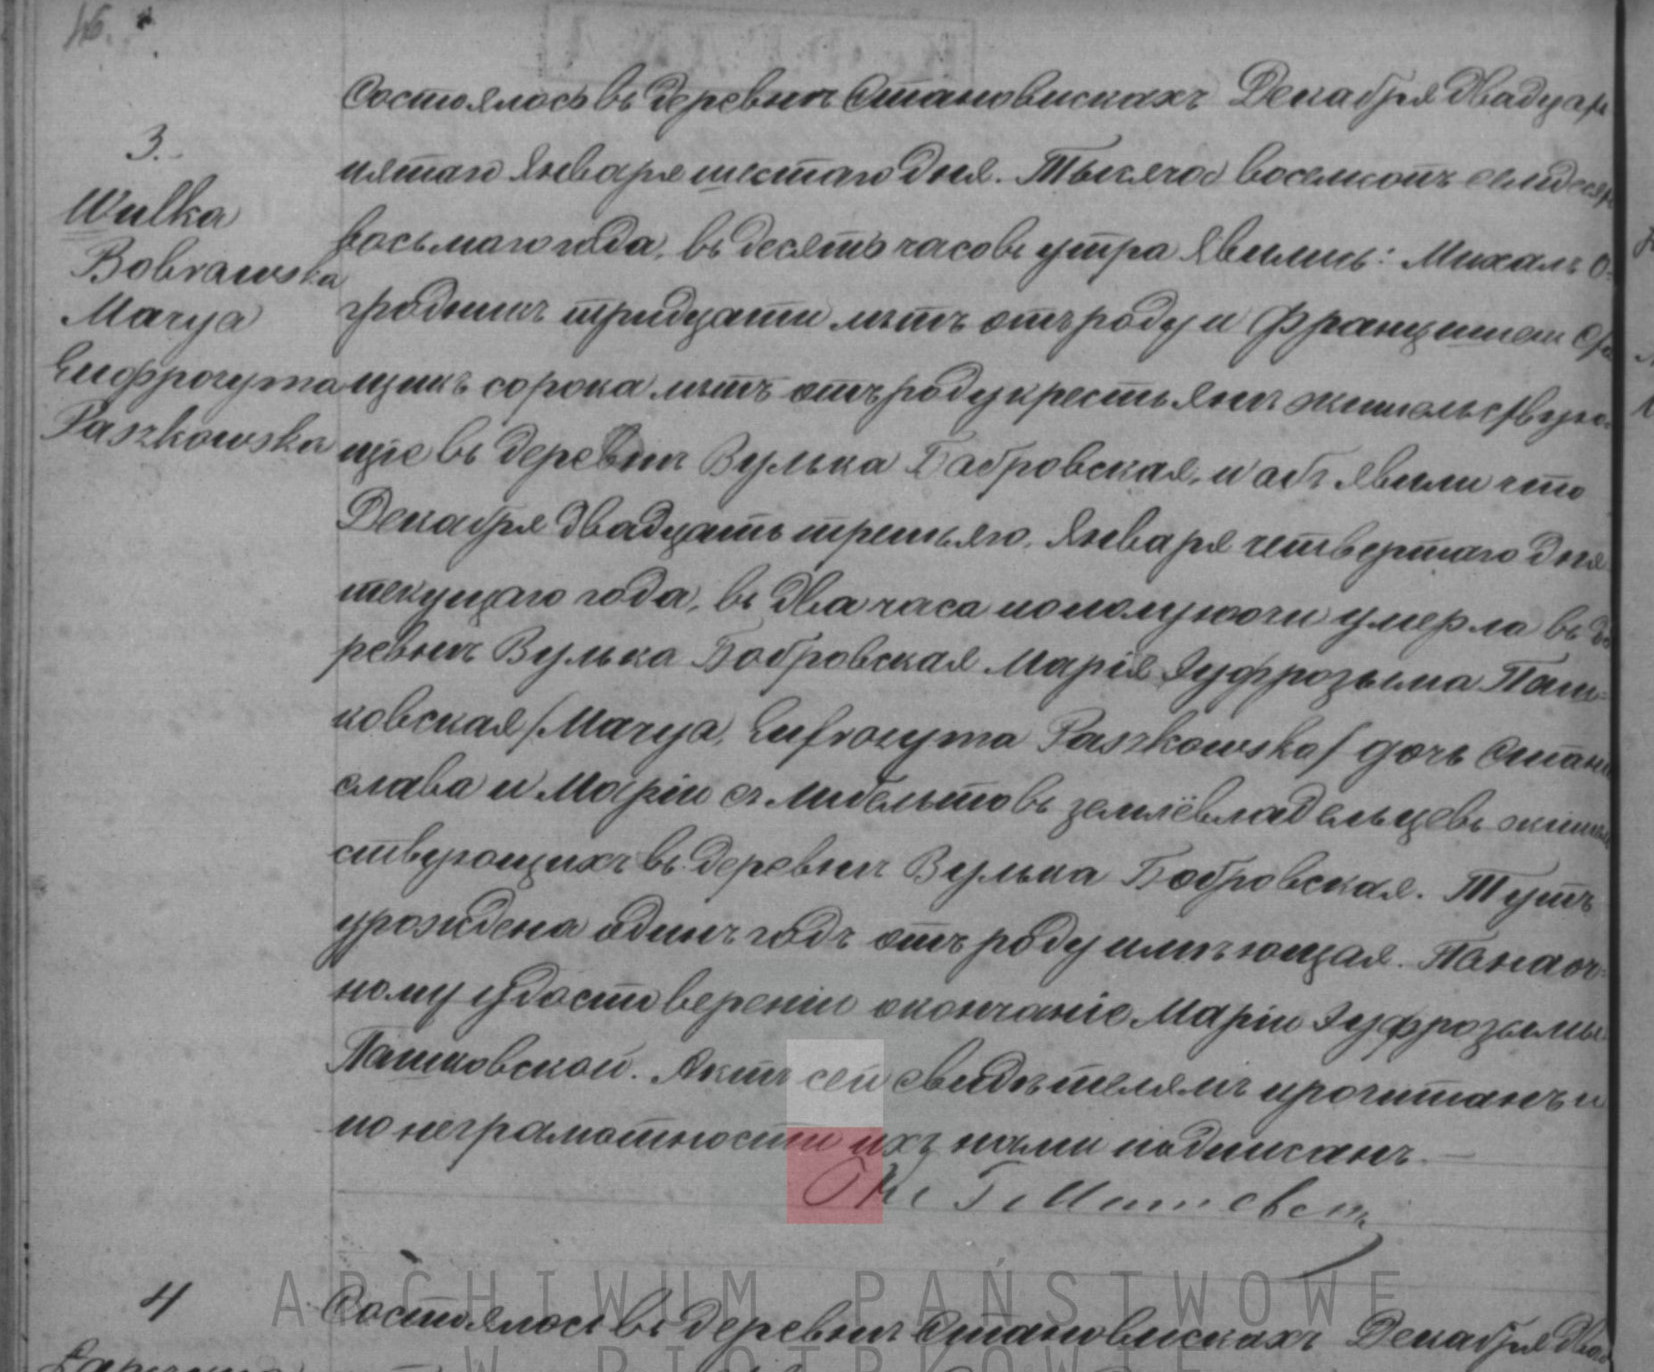 3.
Wulka
Bobrawska
Marya
Еифрогута
Paszkowska
Состоялось въ деревни Становискахъ Декабря двадцать
пятаго Января шестаго дня. Тысяча восемсотъ семдесятъ
восьмаго года, въ десять часовъ утра явились: Михалъ О-
гродникъ тридцати лѣтъ отъ роду и Францишекъ
сорока лѣтъ отъ роду крестьяни жительствую-
щіе въ деревни Вулька Бабровская, и объявили что
Декабря двадцать третьяго, Января четвертаго дня
текущаго года, въ два часа пополуночи умерла въ де-
ревни Вулька Бобровская Марія Эуфрозына Паш-
ковская /Marya, Eufrozyna Paszkowska/ дочь Стани-
слава и Маріи съ землёвладельцевъ житель-
ствующихъ въ деревни Вулька Бобровская. Тутъ
урождена одинъ годъ отъ роду имѣющая. По наоч-
ному удостовереніи окончаніе Маріи Эуфрозыны
Пашковской. Актъ сей свидѣтелямъ прочитанъ и
по неграмотности ихъ нами подписанъ.
4
Состоялось въ деревни Становискахъ Декабря два
ARCHIWUM PAŃSTWOWE
W PIOTRKOWIE